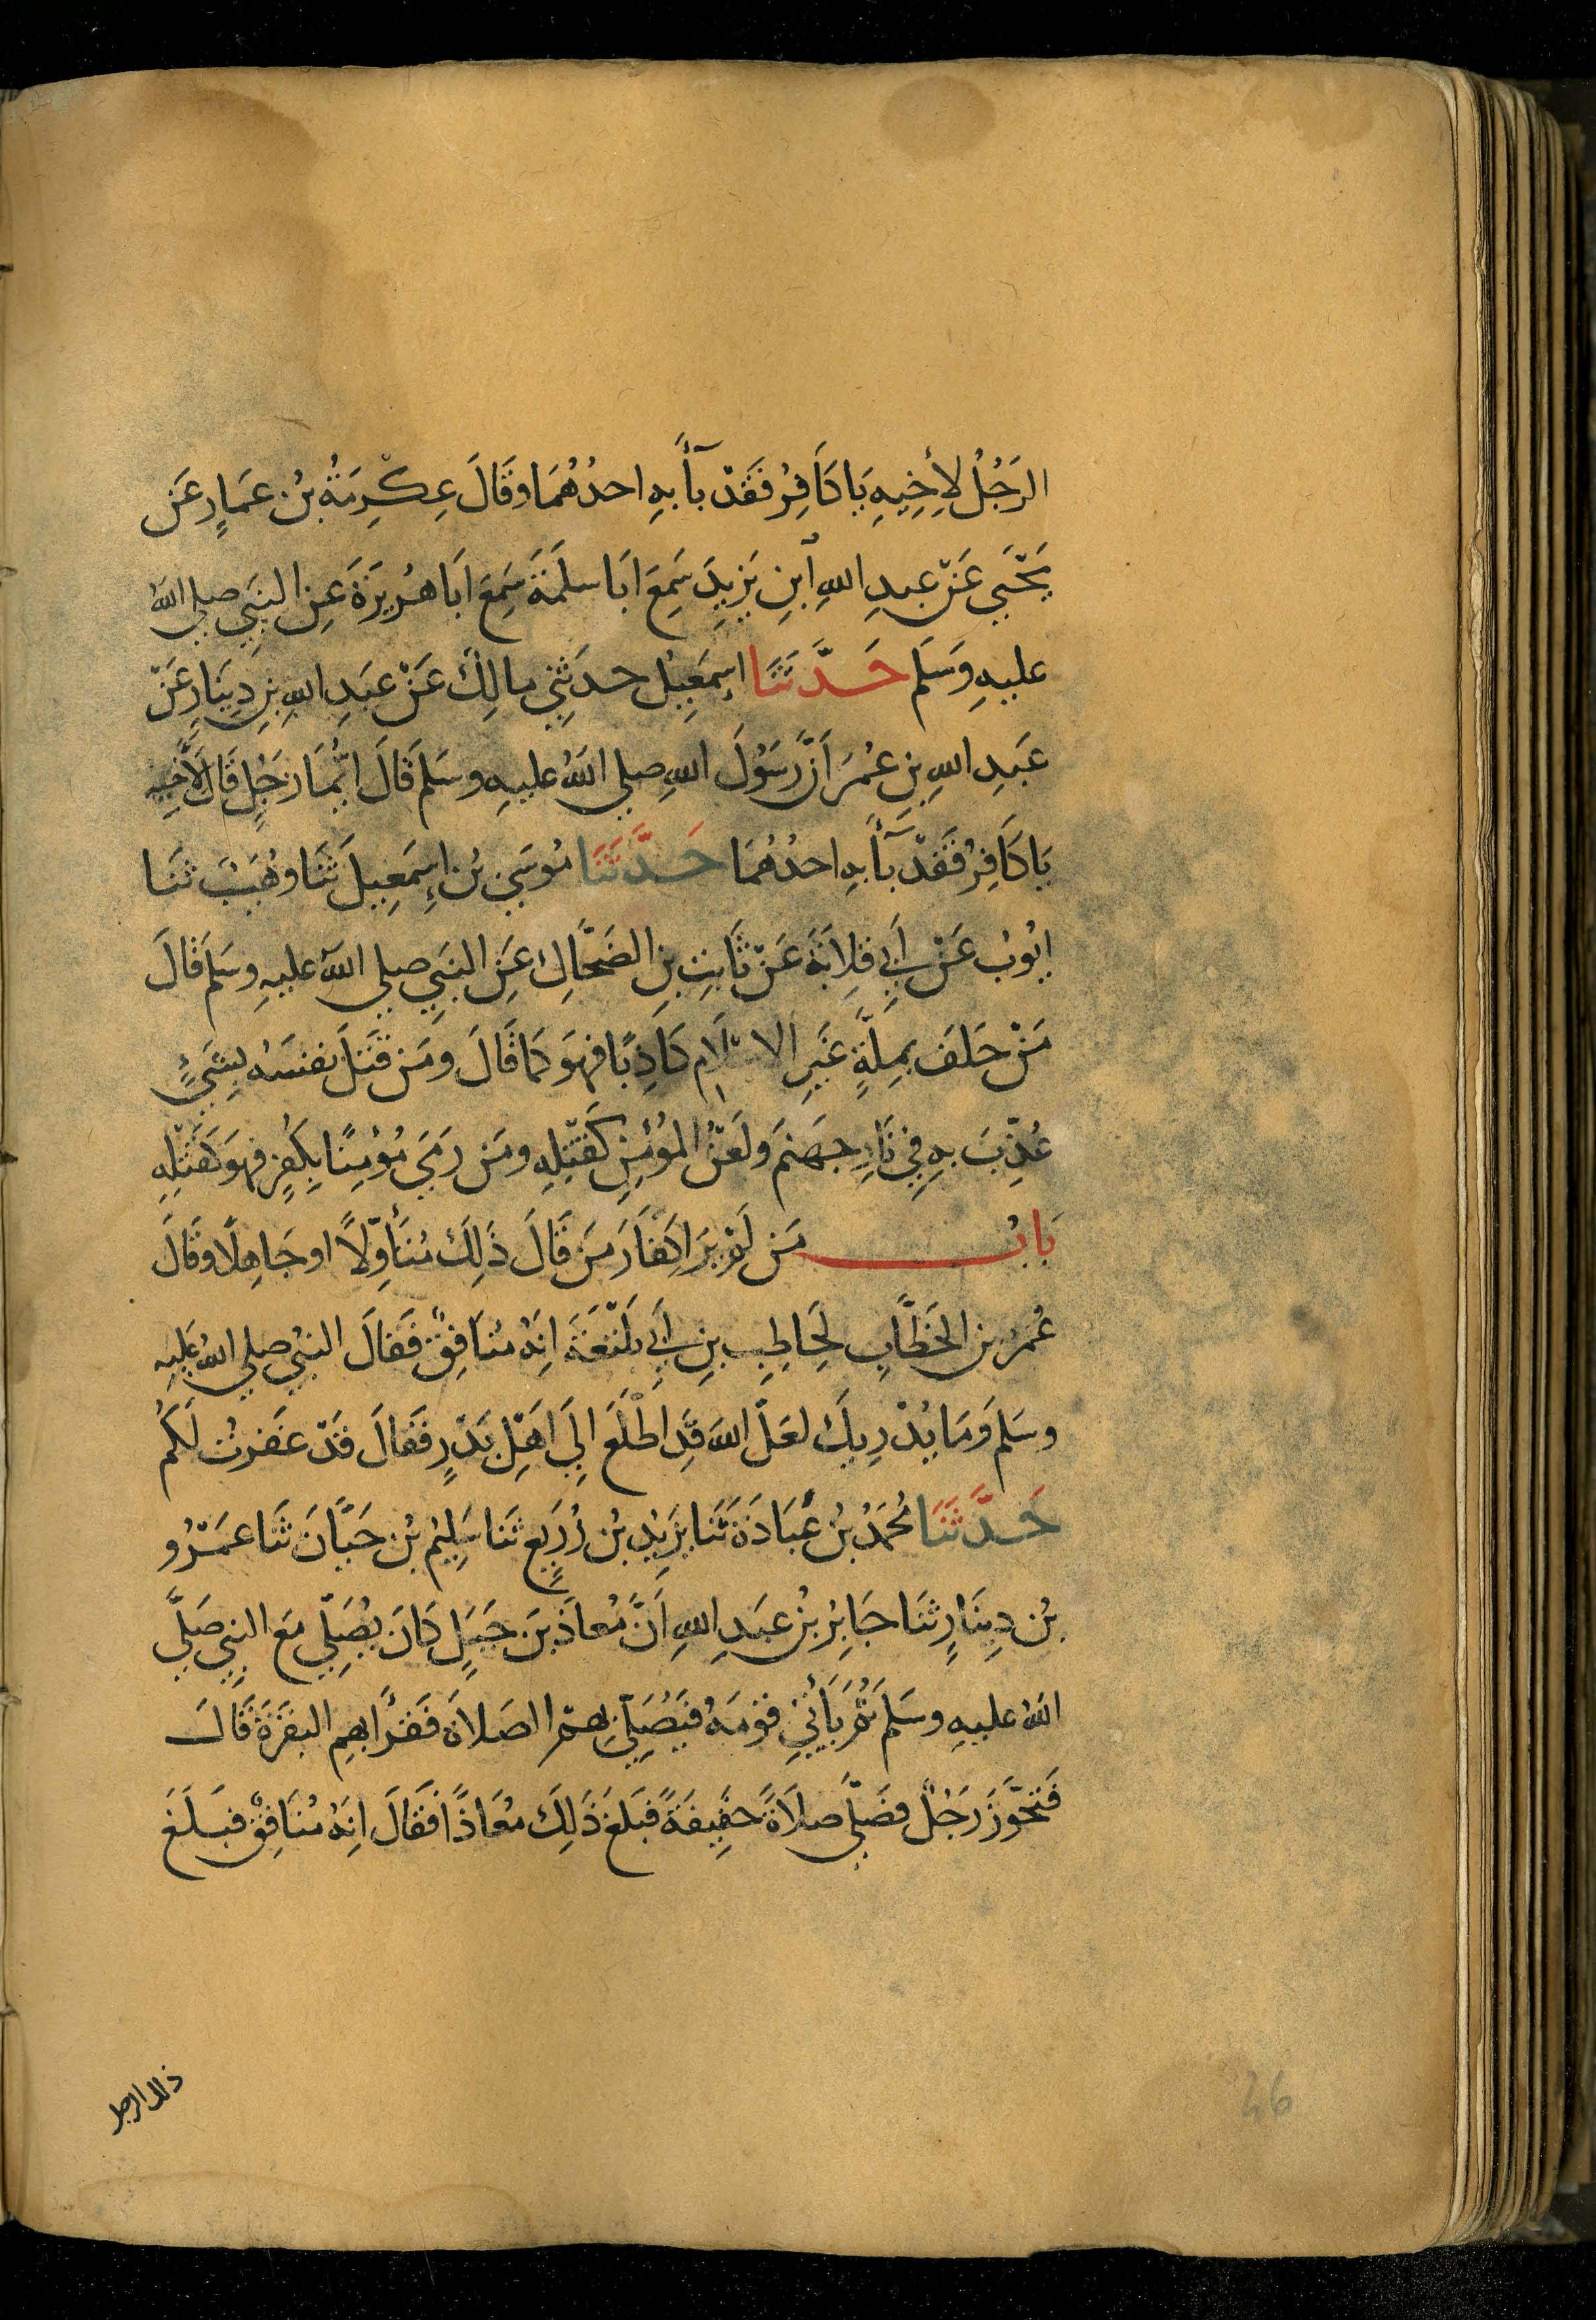 الرَجُلُ لأِخِيهِ يَا كَافِرُ فَقَدْ بَآأَ بهِ احدُهُمَا وقَالَ عِكْرِمَةُ بْنُ عمَارٍ عَن
يَحْيَي عَنْ عبدِ اللهِ ابنِ يَزِيدَ سَمِعَ ابَا سلَمَةَ سَمِعَ ابَا هُرَيرَةَ عِنِ النبَي صلي اللهُ
عليهِ وَسَلم حَدَّثَنَا اسِمَعِيلُ حدَثِنِي مالِكُ عَنْ عبَدِ اللهِ بنِ دِينَارِ عَنْ
عبَدِ اللهِ بنِ عمُرَ اَنَّ رَسُوْلَ اللهِ صلي اللهُ عليهِ وسَلمَ قَالَ ايُّمَا رَجُلٍ قَالَ لأَخِيهِ
يَا كَافِرُ فَقَدْ بَآأَ بهِ احدُهُمَا حَدَّثَنَا مُوسَي بْنُ إسِمَعِيلَ ثَنَا وهُيَبُ ثنَا
ايُوبُ عَنْ اَبِي قِلاَبَةَ عَنْ ثَابتِ بنِ الضَحَّاكِ عَنِ النبَي صلي اللهُ عليهِ وسَلمَ قَالَ
مَنْ حَلفَ بمِلَّةٍ غَيرِ الاسْلاَمِ كَاذِبًا فهوَ كمَا قَالَ ومَن قَتَلَ نفسَهُ بِشَيءٍ
عُذّبَ بهِ فِي نَارِ جهَنمَ ولَعْنُ المُؤْمِنِ كَقَتْلِهِ ومَن رَمَي مُؤمِنًا بِكُفرٍ فهوَ كَقَتْلِهِ
بَابُ مَن لَمْ يرَ اِكفَارَ مَن قَالَ ذَلِكَ مُتَأوّلًا او جَاهِلًا وقَالَ
عُمرُ بن الخَطَّابِ لِحَاطِبِ بنِ اَبِي بَلْتَعَةَ انَهُ مُنَافِقٌ فَقالَ النبيُ صلي اللهُ عَليهِ
وسَلمَ وَمَا يُدْرِيكَ لعَلَّ اللهَ قَدِ اطْلَعَ اِلَي اَهْلِ بَدْرٍ فَقَالَ قَدْ غفَرتُ لَكمُ
حَدَّثَنَا مُحمَدُ بْنُ عُبَادَةَ ثَنَا يزَيِدُ بْنُ زُرَيعٍ ثَنَا سَلِيمُ بْنُ حَيَّانَ ثَنَا عمَرْو
بْنُ دِينَارٍ ثنَا جَابِرُ بْنُ عبَدِ اللهِ اَنَّ مُعاذَ بنَ جَبَلٍ كَانَ يُصَلِّي مَعَ النبيِ صَلَّي
اللهُ عليهِ وسَلمَ ثُمَّ يَأْتِي قومَهُ فَيُصَلِّي بهمُ الصَلاَةَ فَقرَأ بهِمِ البقَرَةَ قَالَ
فَتَجَّوَزَ رَجُلٌ فصَلَّي صلاَةً خَفِيفَةً فبَلغَ ذَلِكَ مُعَاذًا فَقَالَ انَهُ مُنَافِقٌ فبَلَغَ
ذلك الرجل
46